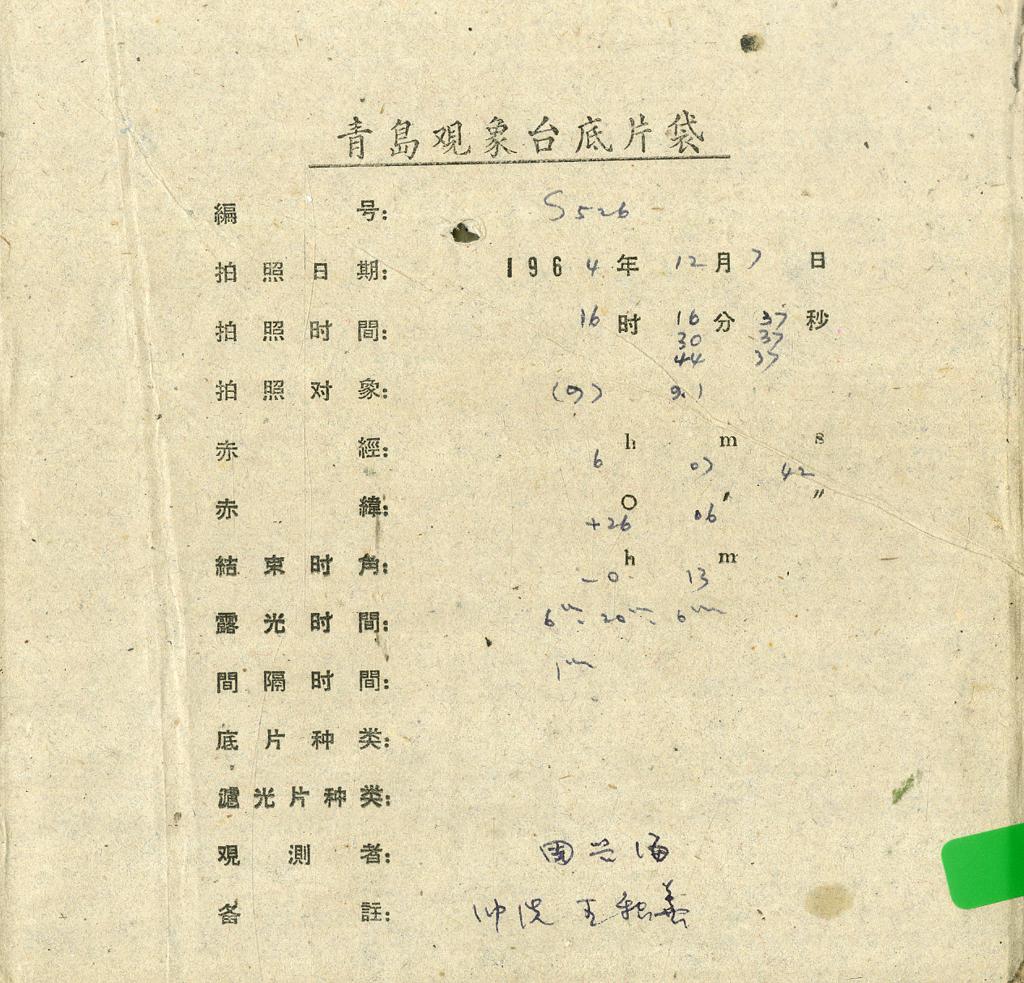 青島观象台底片袋
編号: S526
拍照日期: 1964年 12月 7日
拍照时間: 16时 16分 37秒
30 37
44 37
拍照对象: (97) 9.1
赤經: 6h 07m 42s
赤緯: +26° 06′ ″
結束时角: -0h 13m
露光时間: 6m. 20m. 6m
間隔时間: 1m
底片种类:
濾光片种类:
观測者: 周兴海
备註: 冲洗 王